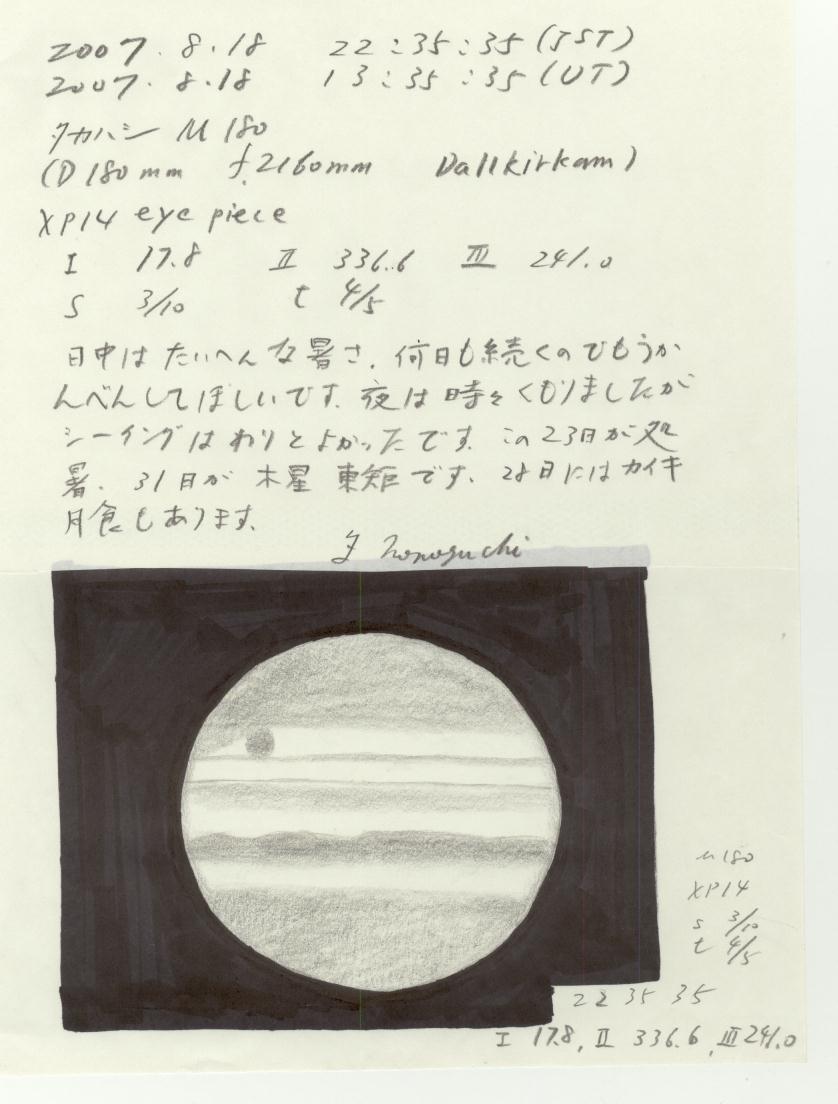 2007.8.18 22:35:35 (JST)
2007.8.18 13:35:35 (UT)
タカハシ M180
(D180mm f.2160mm Dallkirkam)
XP14 eye piece
I 17.8 II 336.6 III 241.0
S 3/10 t 4/5
日中はたいへんな暑さ.何日も続くのでもうか
んべんしてほしいです.夜は時々くもりましたが
シーイングはわりとよかったです.この23日が処
暑.31日が木星東矩です.28日にはカイキ
月食もあります.
Nonoguchi
M180
XP14
s 3/10
t 4/5
22 35 35
I 17.8, II 336.6, III 241.0